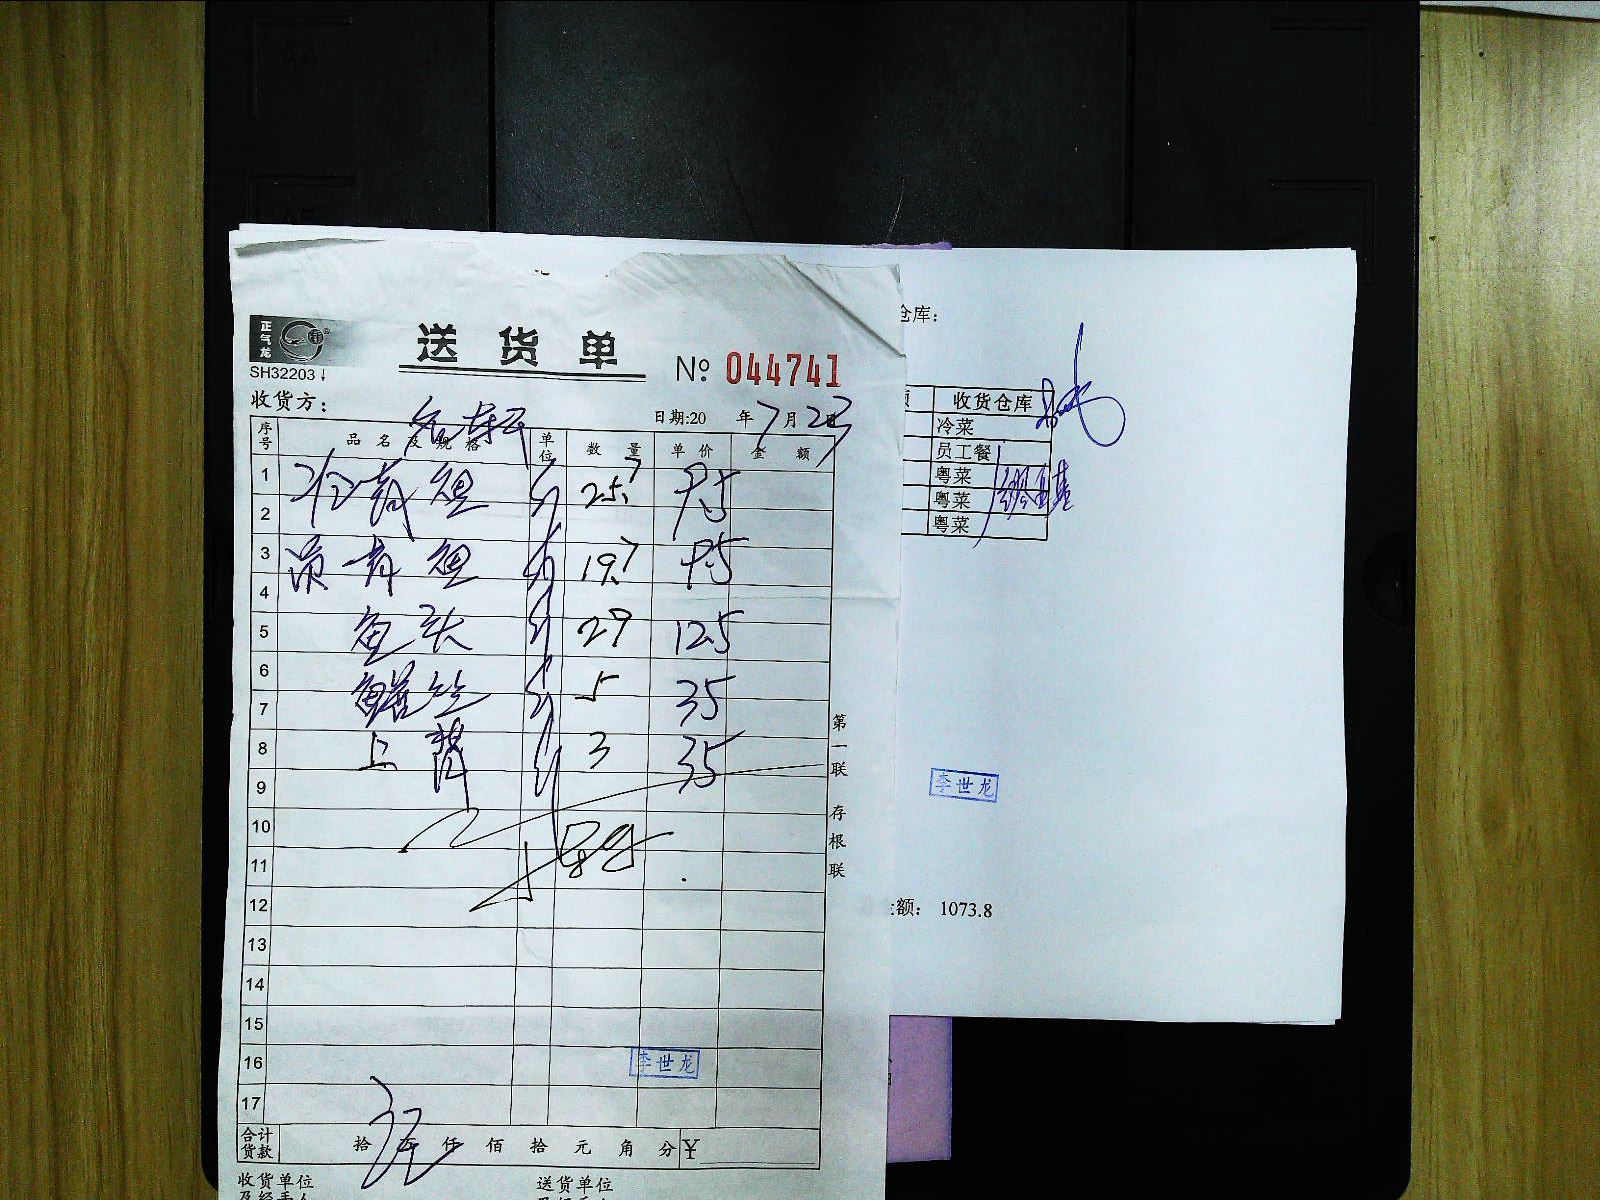 正气龙
SH32203
送货单
№ 044741
收货方：
日期:20 年 7 月 23 日
序号 品名及规格 单位 数量 单价 金额
1 冷青鱼 斤 25.7 9.5
2
3 青鱼 斤 19.7 9.5
4
5 鱼头 斤 29 12.5
6
7 鳝丝 斤 5 35
8 上 斤 3 35
9
10
11
12
13
14
15
16
17
李世龙
合计货款 拾 万 仟 佰 拾 元 角 分 ¥
收货单位
送货单位
第一联 存根联
仓库：
收货仓库
冷菜
员工餐
粤菜
粤菜
粤菜
李世龙
额： 1073.8